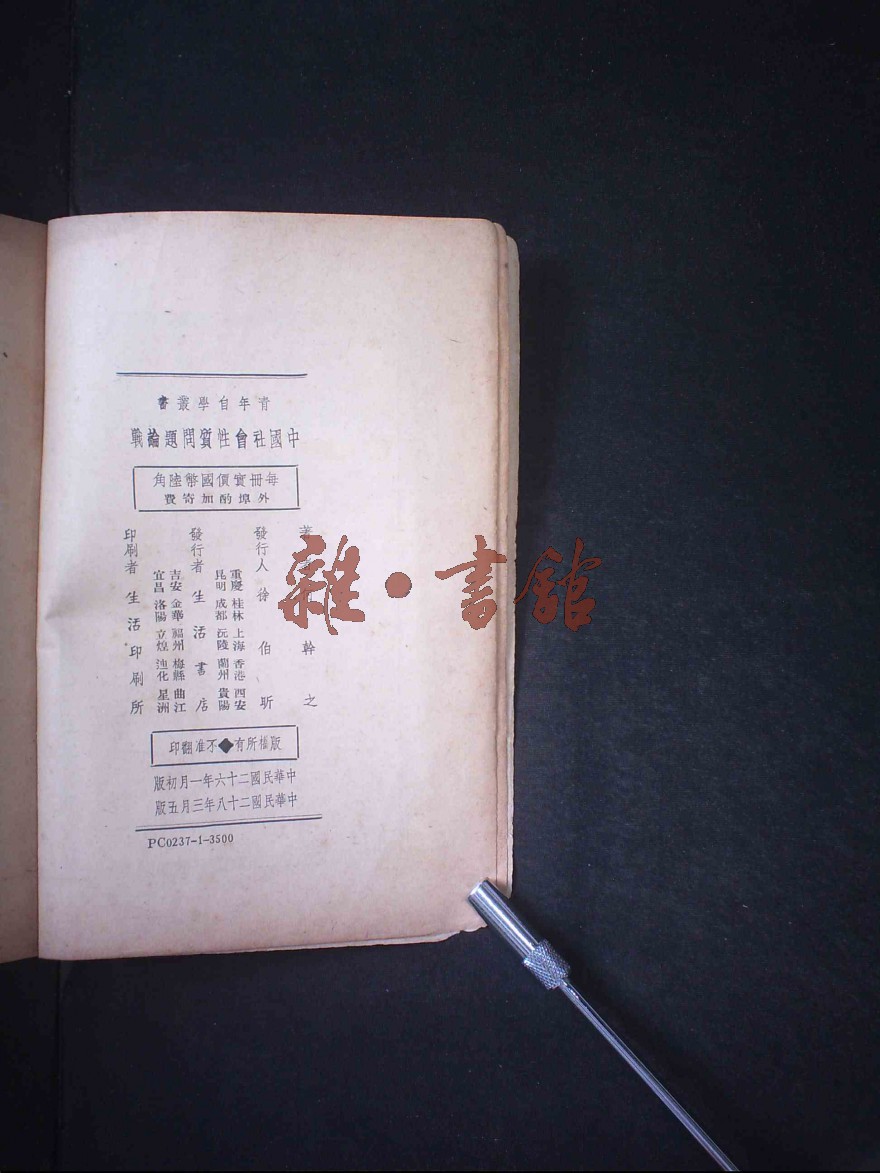 青年自學叢書
中國社會性質問題論戰
每冊實價國幣陸角
外埠酌加寄費
著 幹之
發行人 徐伯昕
重慶 桂林 上海 香港 西安
昆明 成都 沅陵 蘭州 貴陽
發行者 生活書店
吉安 金華 福州 梅縣 曲江
宜昌 洛陽 立煌 迪化 星洲
印刷者 生活印刷所
版權所有◆不准翻印
中華民國二十六年一月初版
中華民國二十八年三月五版
PC0237-1-3500
雜·書館